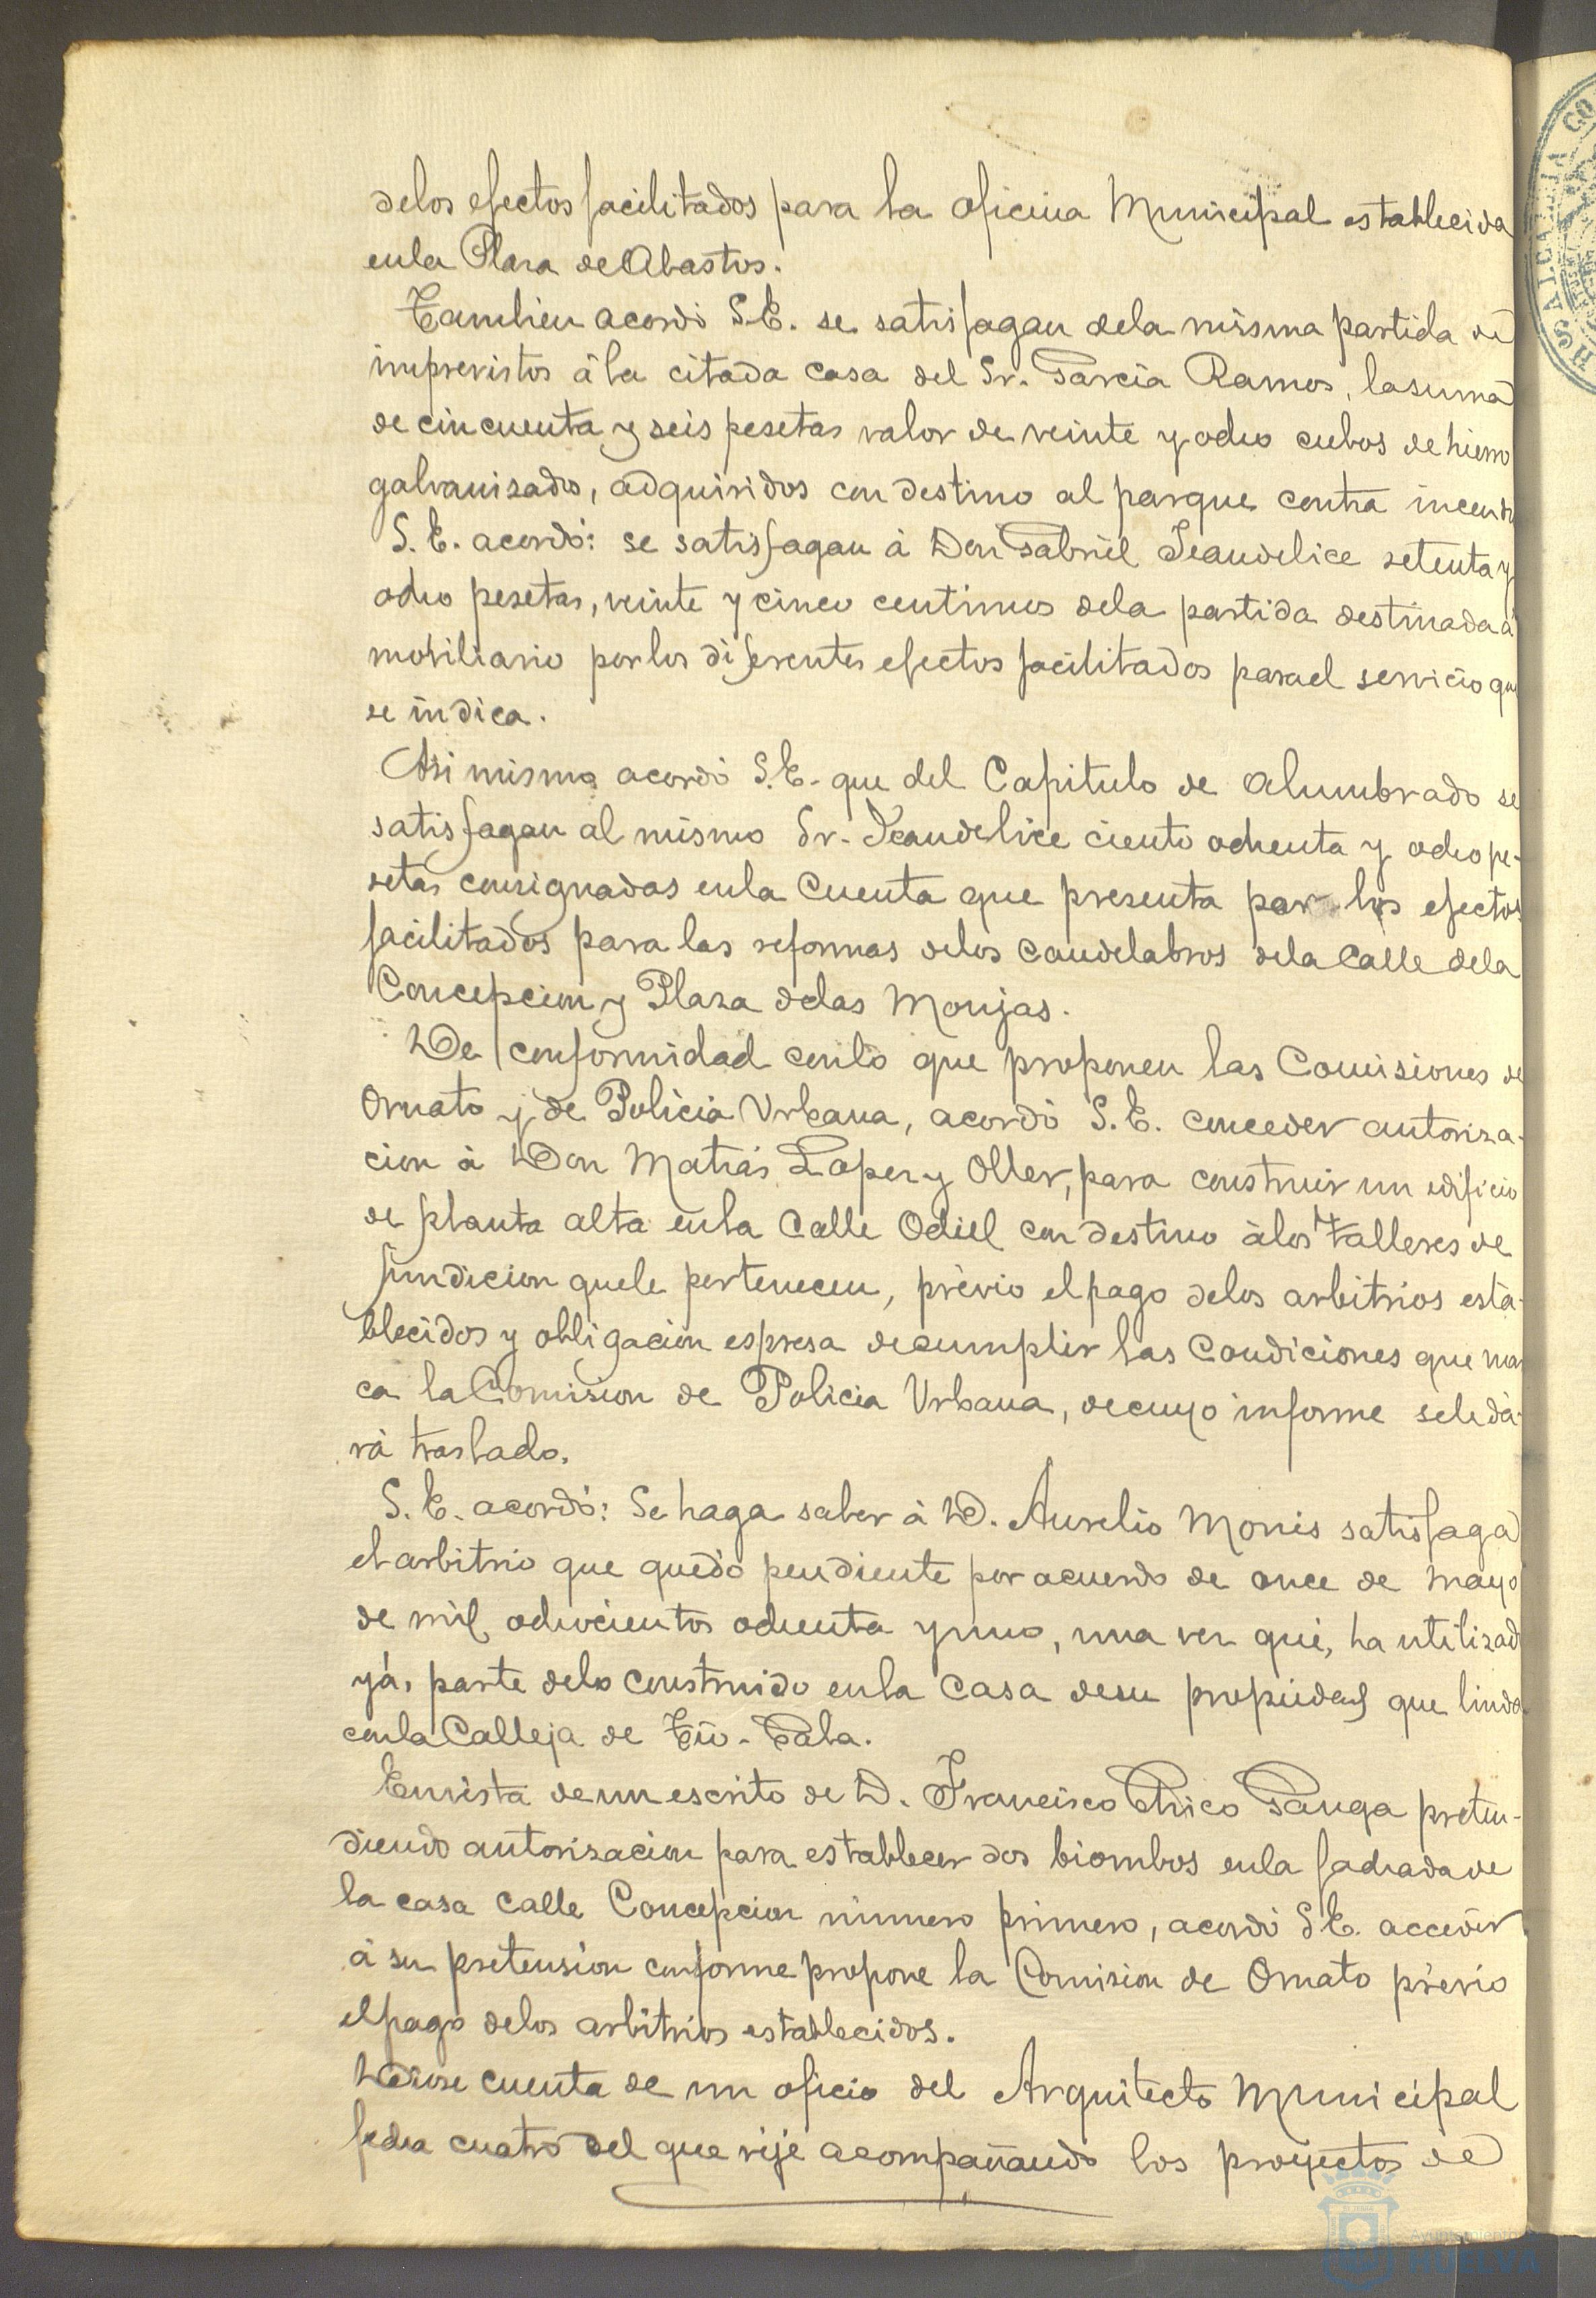 delos efectos facilitados para la oficina Municipal establecida
enla Plaza de Abastos.
Tambien acordó S.E. se satisfagan dela misma partida de
imprevistos á la citada casa del Sr. Garcia Ramos, lasuma
de cincuenta y seis pesetas valor de veinte y ocho cubos de hierro
galvanizados, adquiridos con destino al parque contra incendi
S. E. acordó: se satisfagan á Don Gabriel Jeandelice setenta y
ocho pesetas, veinte y cinco centimos dela partida destinada á
mobiliario por los diferentes efectos facilitados parael servicio que
se indica.
Asi mismo acordó S.E. que del Capitulo de alumbrado se
satisfagan al mismo Sr. Jeandelice ciento ochenta y ocho pe-
setas consignadas enla Cuenta que presenta por los efectos
facilitados para las reformas delos candelabros dela Calle dela
Concepcion y Plaza delas Monjas.
De conformidad conlo que proponen las Comisiones de
Ornato y de Policia Urbana, acordó S.E. conceder autoriza-
cion á Don Matias Lopez y Oller, para construir un edificio
de planta alta enla Calle Odiel con destino álos talleres de
fundicion quele pertenecen, prévio el pago delos arbitrios esta-
blecidos y obligacion espresa decumplir las Condiciones que mar
ca la Comision de Policia Urbana, decuyo informe seledá-
rá traslado.
S. E. acordó: Se haga saber á D. Aurelio Monis satisfaga
el arbitrio que quedó pendiente por acuerdo de once de Mayo
de mil ochocientos ochenta yuno, una vez que, ha utilizad
yá, parte delo construido enla casa desu propiedad que linda
conla Calleja de Tio-Pala.
Envista de un escrito de D. Francisco Chico Ganga preten-
diendo autorizacion para establecer dos biombos enla fachada de
la casa calle Concepcion número primero, acordó S.E. acceder
á su pretension conforme propone la Comision de Ornato prévio
elpago delos arbitrios establecidos.
Diose cuenta de un oficio del Arquitecto Municipal
fecha cuatro del que rije acompañando los proyectos de
Ayuntamiento
HUELVA